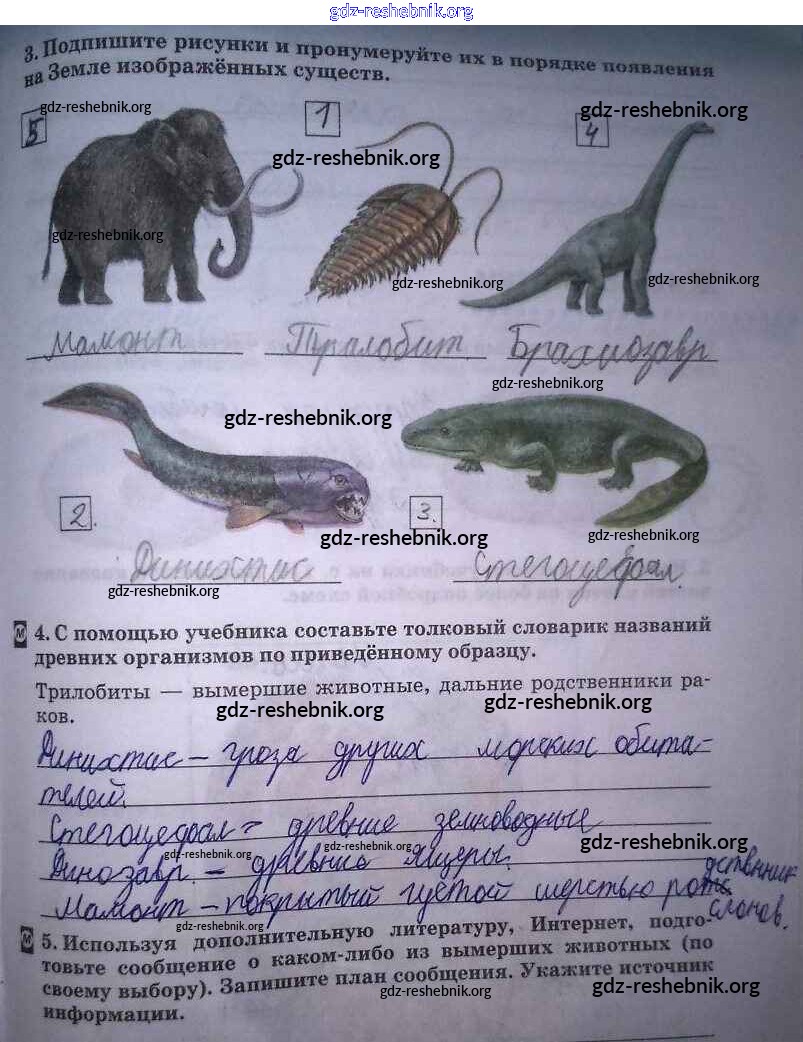 gdz-reshebnik.org
3. Подпишите рисунки и пронумеруйте их в порядке появления
на Земле изображённых существ.
gdz-reshebnik.org
gdz-reshebnik.org
5
1
4
gdz-reshebnik.org
gdz-reshebnik.org
gdz-reshebnik.org
gdz-reshebnik.org
Мамонт
Трилобит
Брахиозавр
gdz-reshebnik.org
gdz-reshebnik.org
2.
3.
gdz-reshebnik.org
gdz-reshebnik.org
Динихтис
Стегоцефал
gdz-reshebnik.org
4. С помощью учебника составьте толковый словарик названий
древних организмов по приведённому образцу.
Трилобиты — вымершие животные, дальние родственники ра-
ков.
gdz-reshebnik.org
gdz-reshebnik.org
Динихтис – гроза других морских обита-
телей.
Стегоцефал – древние земноводные
gdz-reshebnik.org
gdz-reshebnik.org
Динозавр – древние ящеры.
Мамонт – покрытый густой шерстью родственник
слонов.
gdz-reshebnik.org
5. Используя дополнительную литературу, Интернет, подго-
товьте сообщение о каком-либо из вымерших животных (по
своему выбору). Запишите план сообщения. Укажите источник
информации.
gdz-reshebnik.org
gdz-reshebnik.org